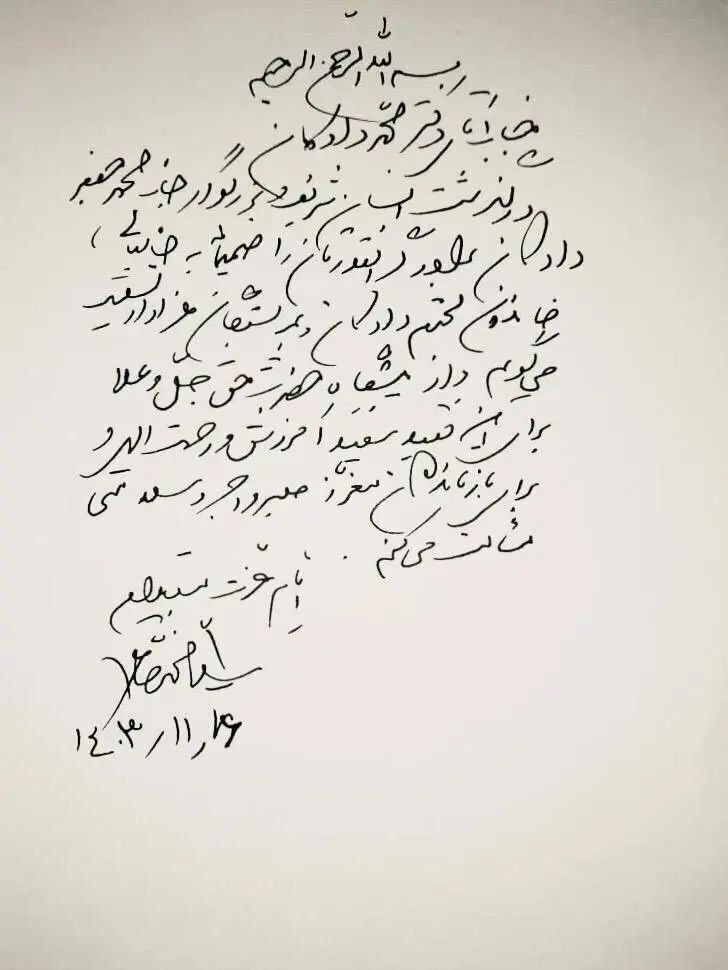 بسم الله الرحمن الرحیم
جناب آقای دکتر محمد دادکان
درگذشت انسان شریف و بزرگوار جناب محمد جعفر
دادکان برادر گرانقدرتان را صمیمانه به جنابعالی،
خاندان محترم دادکان و بستگان عزادار تسلیت
می‌گویم و از پیشگاه حضرت حق جلّ و علا
برای این فقید سعید آمرزش و رحمت الهی و
برای بازماندگان معزز صبر و اجر و سلامتی
مسألت می‌کنم.
ایام عزت مستدام
سید محمد خاتمی
۱۴۰۳ر۱۱ر۲۶